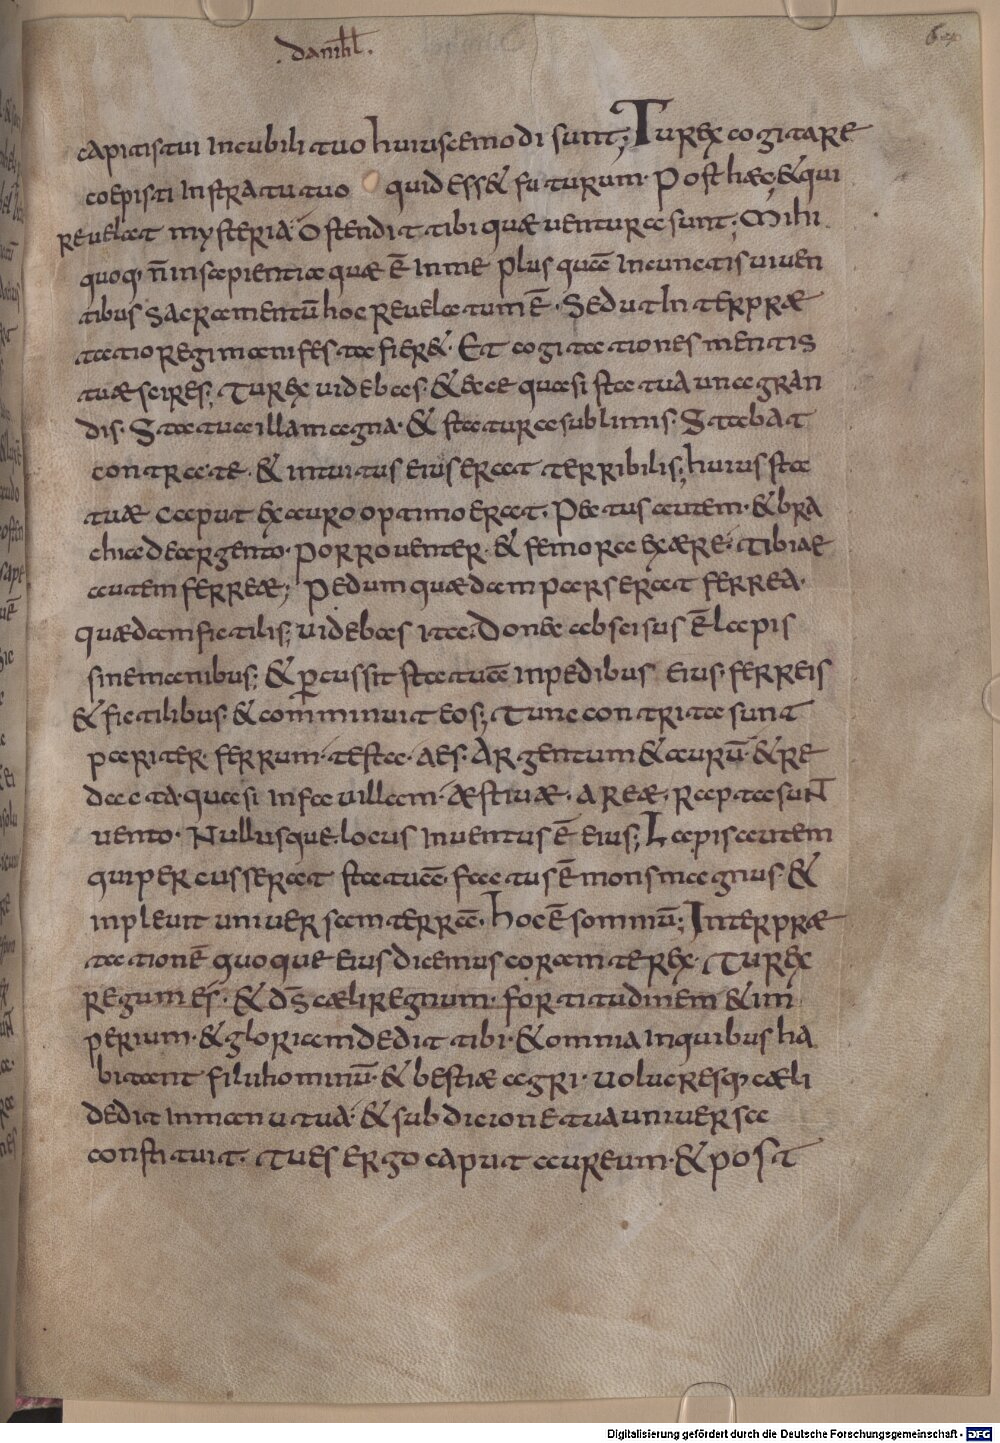 . danihl .
capitis tui in cubili tuo huiuscemodi sunt; Tu rex cogitare
coepisti in stratu tuo quid ess& futurum· Post haec, & qui
reuelat mysteria Ostendit tibi quae uentura sunt; Mihi
quoq· n̄ in sapientia quae ē in me plus quā in cunctis uiuen
tibus sacramentū hoc reuelatum ē· Sed ut Interprae
tatio regi manifesta fier&· Et cogitationes mentis
tuae scires; Tu rex uidebas· & ecce quasi statua una gran
dis· Statua illa magna· & statura sublimis· Stabat
contra te· & intuitus eius erat terribilis; huius sta
tuae Caput ex auro optimo erat· Pectus autem· & bra
chia de argento· Porro uenter· & femora ex aere· Tibiae
autem ferreae; Pedum quaedam pars erat ferrea·
quaedam fictilis; uidebas ita· Donec abscisus ē lapis
sine manibus; & p̱cussit statuā in pedibus eius· ferreis
& fictilibus· & comminuit eos; Tunc contrita sunt
pariter· ferrum· testa· aes· Argentum & aurū· & re
dacta· quasi in fauillam· aestiuae· Areae· rapta sunt
uento· Nullusque locus Inuentus ē eius; Lapis autem
qui percusserat statuā· factus ē mons magnus· &
inpleuit uniuersam terrā· hoc ē somniū; Interprae
tationē quoque eius dicemus coram te rex· Tu rex
regum es̄· & dš caeli regnum· fortitudinem & im
perium· & gloriam dedit tibi· & omnia In quibus ha
bitant filii hominū· & bestiae agri· uolucresq· caeli
dedit in manu tua· & sub dicione tua uniuersa
constituit· Tu es ergo caput aureum· & post
Digitalisierung gefördert durch die Deutsche Forschungsgemeinschaft - DFG